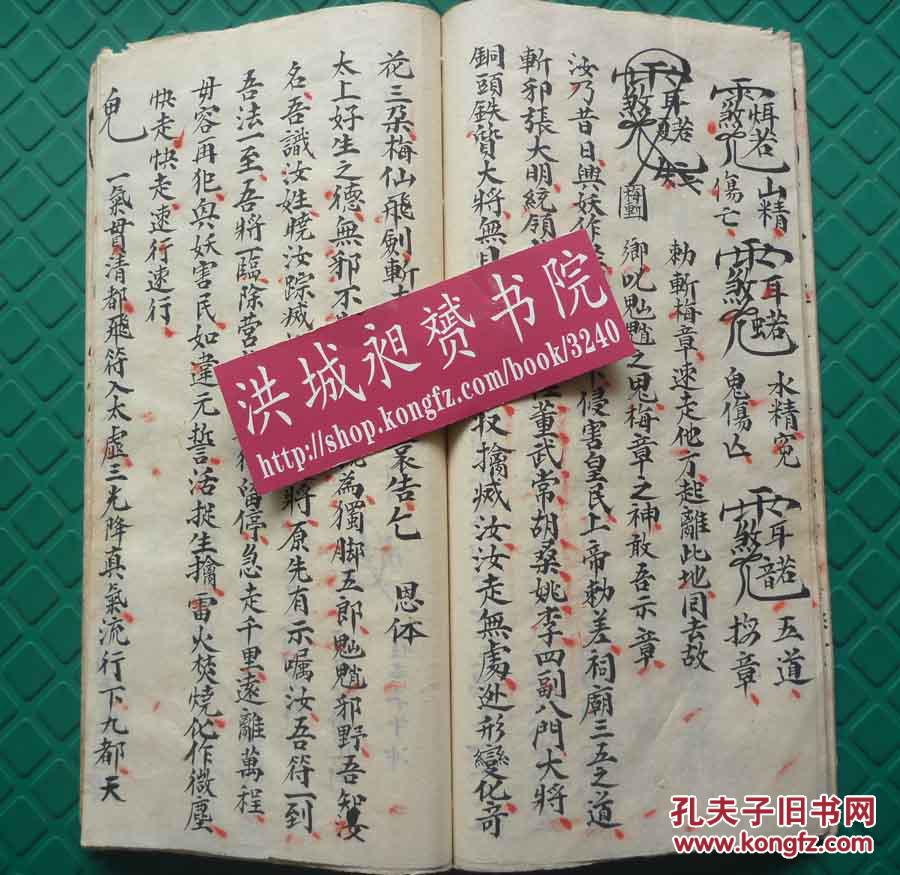 山精
傷亡
水精冤
鬼傷亡
五道
按章
勅斬梅章速走他方起離此地囘去故
鄉叱魈之鬼梅章之神敢吾示章
汝乃昔日興妖作
侵害皇民上帝勅差祠廟三五之道
斬邪張大明統領
董武常胡桑姚李四副八門大將
銅頭鉄
大將無
收擒滅汝汝走無處逃形變化奇
花三朶梅仙飛劍斬
哀告乞
恩体
太上好生之德無邪不
為獨脚五郎
邪野吾知
名吾識汝姓曉汝踪
將原先有示嘱汝吾符一到
吾法一至吾將一臨除营
留停急走千里遠離萬程
毋容再犯與妖害民如違元誓活捉生擒雷火焚燒化作微塵
快走快走速行速行
一氣貫清都飛符入太虛三光降真氣流行下九都天
洪城昶赟书院
http://shop.kongfz.com/book/3240
孔夫子旧书网
www.kongfz.com